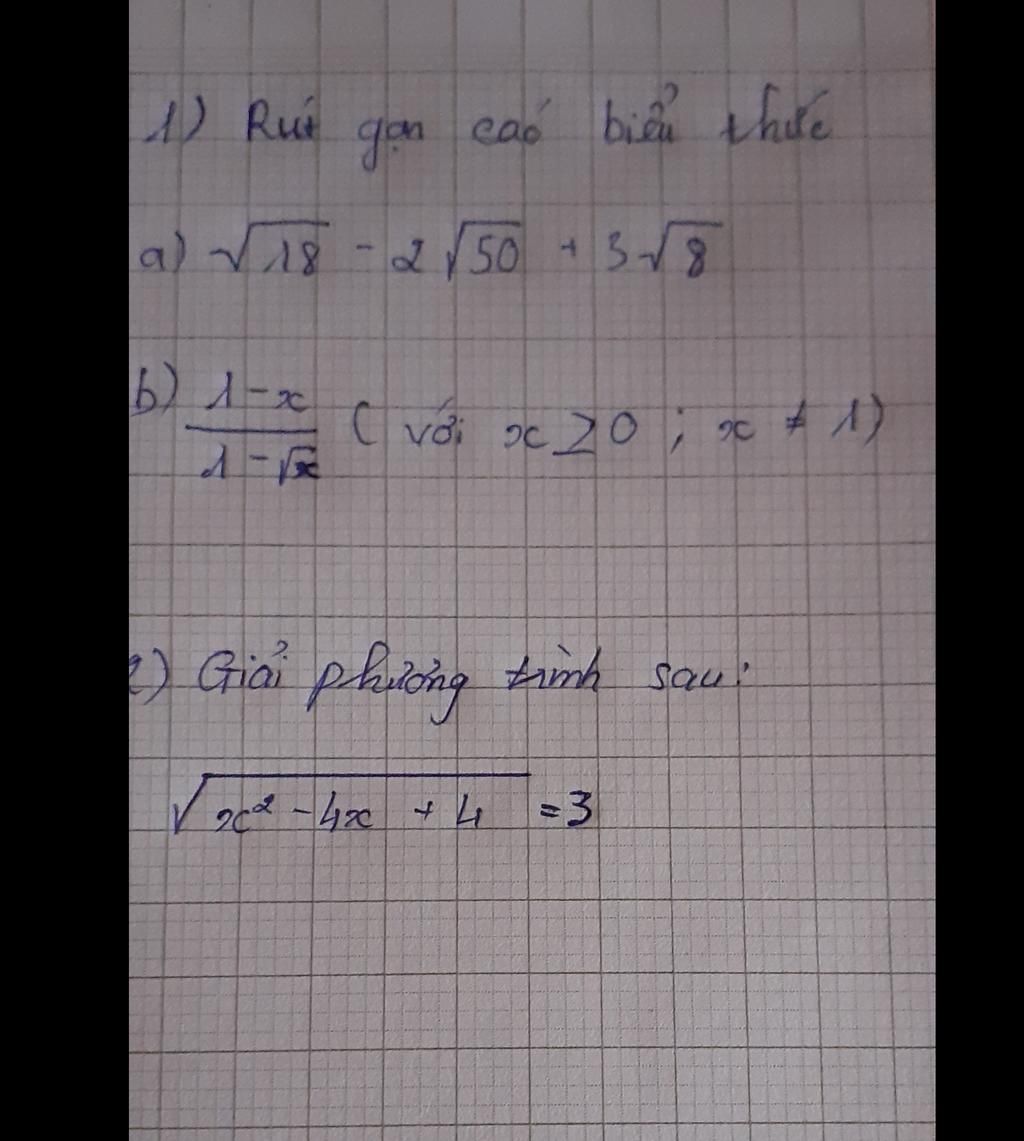 1) Rút gọn các biểu thức
a) √18 - 2√50 + 3√8
b) (1-x)/(1-√x) ( với x ≥ 0 ; x ≠ 1)
2) Giải phương trình sau:
√(x² - 4x + 4) = 3